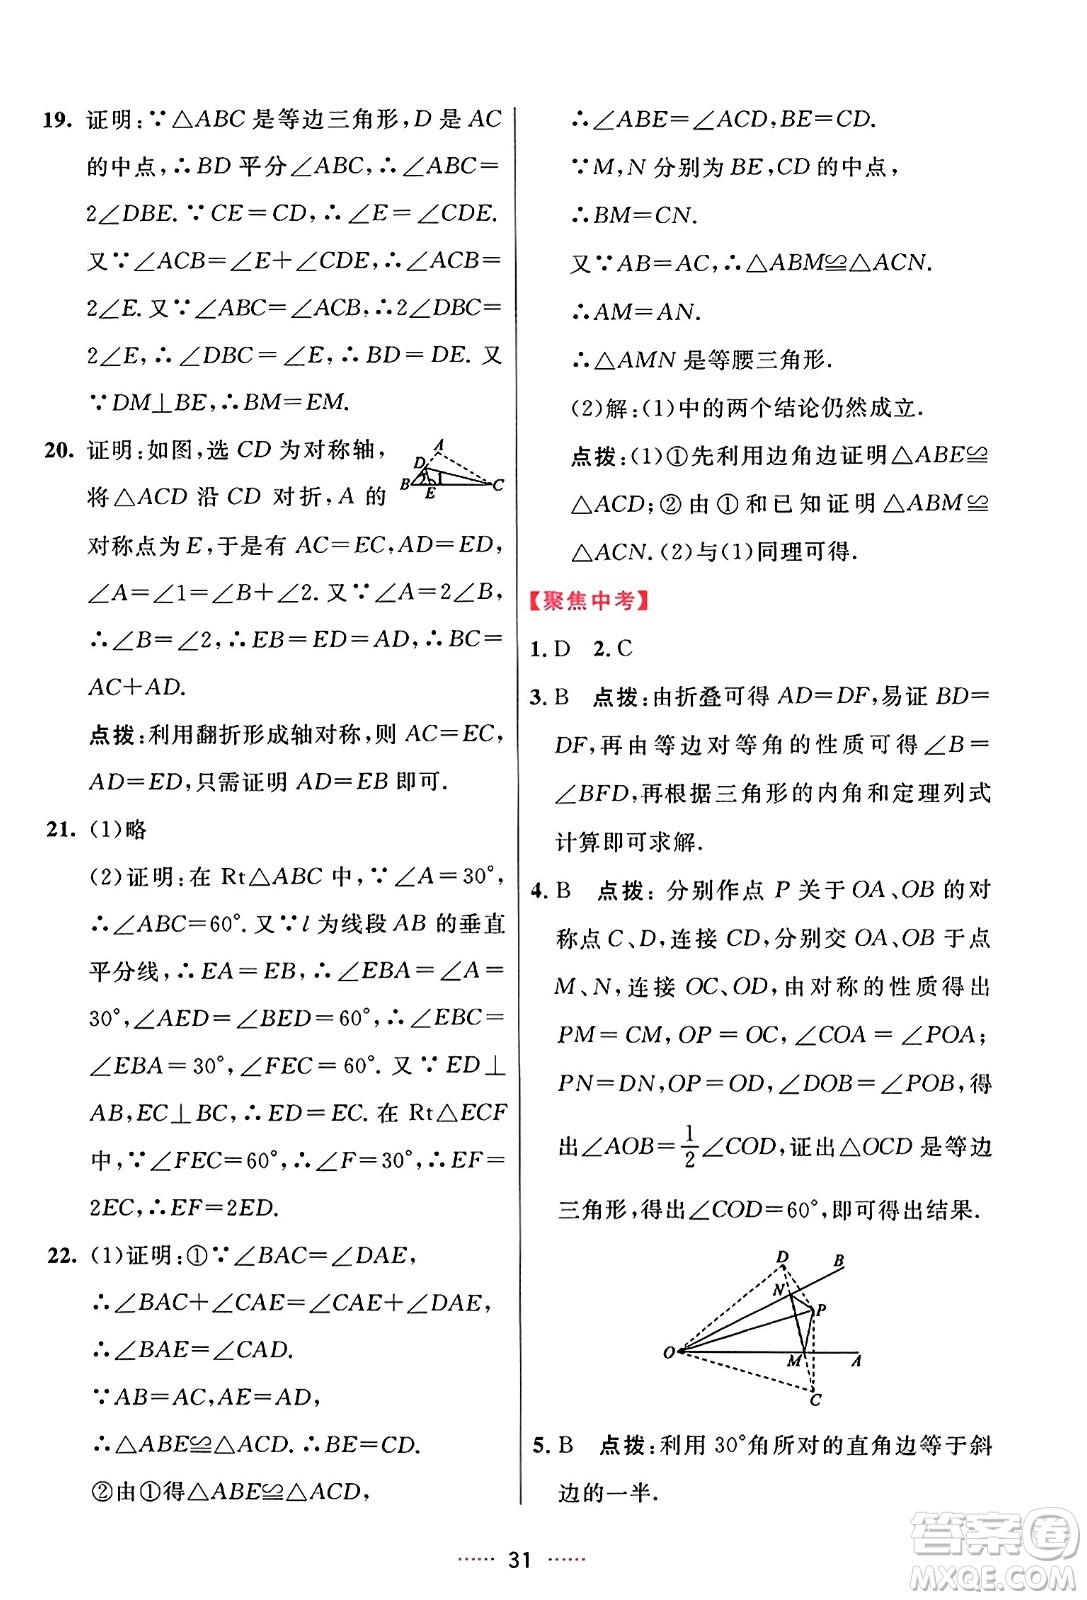 19. 证明:∵△ABC 是等边三角形,D 是 AC
的中点,∴BD 平分∠ABC,∴∠ABC=
2∠DBE.∵CE=CD,∴∠E=∠CDE.
又∵∠ACB=∠E+∠CDE,∴∠ACB=
2∠E.又∵∠ABC=∠ACB,∴2∠DBC=
2∠E,∴∠DBC=∠E,∴BD=DE.又
∵DM⊥BE,∴BM=EM.
20. 证明:如图,选 CD 为对称轴,
将△ACD 沿 CD 对折,A 的
对称点为 E,于是有 AC=EC,AD=ED,
∠A=∠1=∠B+∠2.又∵∠A=2∠B,
∴∠B=∠2,∴EB=ED=AD,∴BC=
AC+AD.
点拨:利用翻折形成轴对称,则 AC=EC,
AD=ED,只需证明 AD=EB 即可.
A
D
B
E
C
21. (1)略
(2)证明:在 Rt△ABC 中,∵∠A=30°,
∴∠ABC=60°.又∵l 为线段 AB 的垂直
平分线,∴EA=EB,∴∠EBA=∠A=
30°,∠AED=∠BED=60°,∴∠EBC=
∠EBA=30°,∠FEC=60°.又∵ED⊥
AB,EC⊥BC,∴ED=EC.在 Rt△ECF
中,∵∠FEC=60°,∴∠F=30°,∴EF=
2EC,∴EF=2ED.
22. (1)证明:①∵∠BAC=∠DAE,
∴∠BAC+∠CAE=∠CAE+∠DAE,
∴∠BAE=∠CAD.
∵AB=AC,AE=AD,
∴△ABE≌△ACD.∴BE=CD.
②由①得△ABE≌△ACD,
∴∠ABE=∠ACD,BE=CD.
∵M,N 分别为 BE,CD 的中点,
∴BM=CN.
又∵AB=AC,∴△ABM≌△ACN.
∴AM=AN.
∴△AMN 是等腰三角形.
(2)解:(1)中的两个结论仍然成立.
点拨:(1)①先利用边角边证明△ABE≌
△ACD;②由①和已知证明△ABM≌
△ACN.(2)与(1)同理可得.
【聚焦中考】
1. D 2. C
3. B 点拨:由折叠可得 AD=DF,易证 BD=
DF,再由等边对等角的性质可得∠B=
∠BFD,再根据三角形的内角和定理列式
计算即可求解.
4. B 点拨:分别作点 P 关于 OA、OB 的对
称点 C、D,连接 CD,分别交 OA、OB 于点
M、N,连接 OC、OD,由对称的性质得出
PM=CM,OP=OC,∠COA=∠POA;
PN=DN,OP=OD,∠DOB=∠POB,得
出∠AOB=1/2∠COD,证出△OCD 是等边
三角形,得出∠COD=60°,即可得出结果.
D
B
N
P
O
M
A
C
5. B 点拨:利用 30°角所对的直角边等于斜
边的一半.
······ 31 ······
答案卷
MXQE.COM